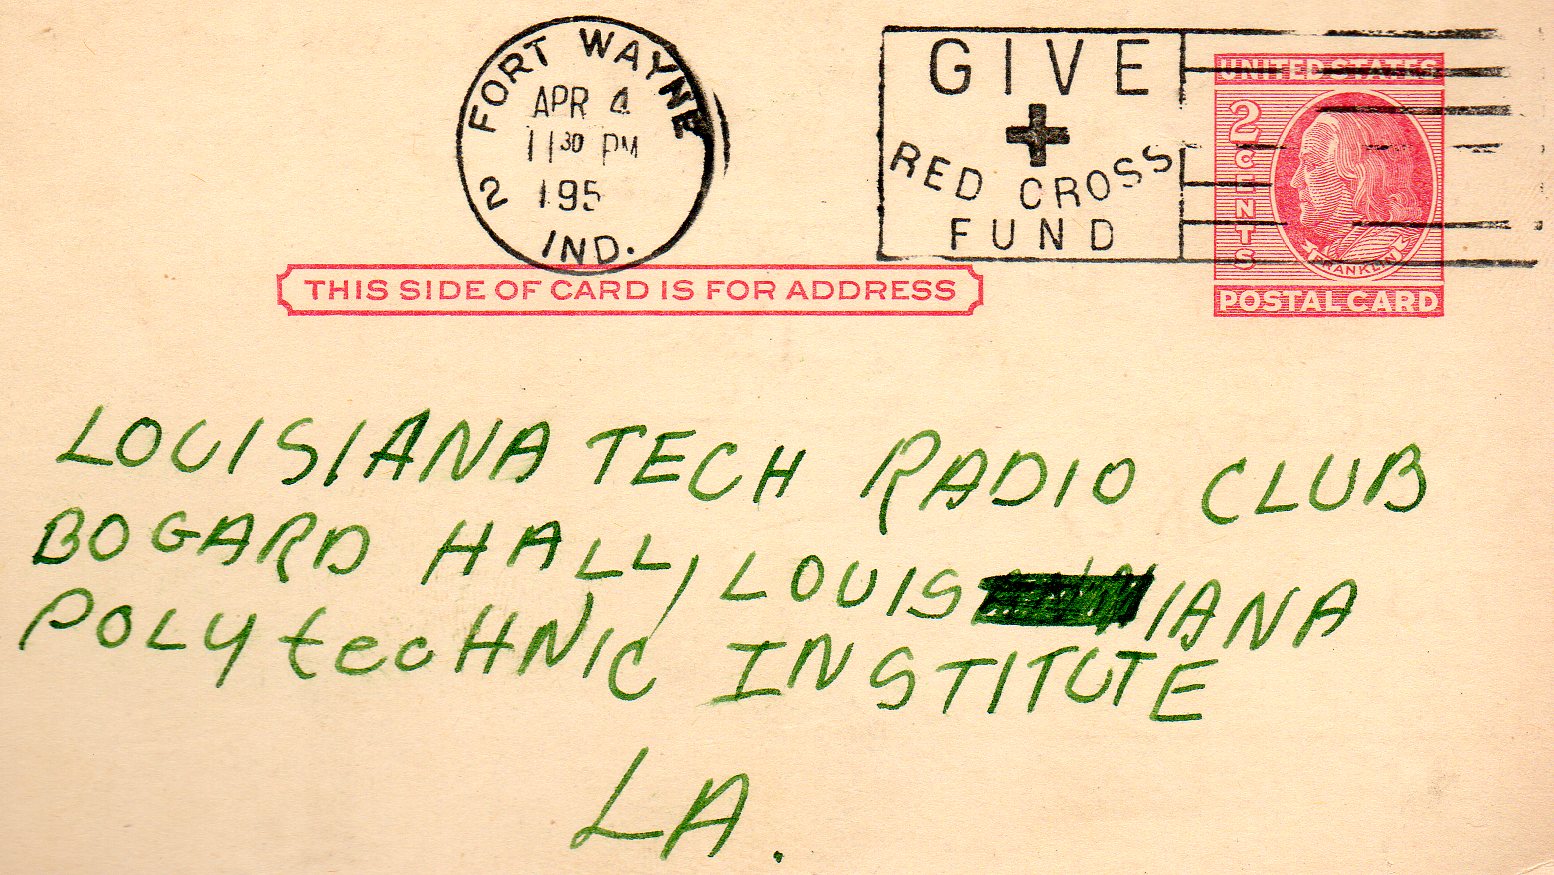 FORT WAYNE
APR 4
11 30 PM
2 195
IND.
GIVE
RED CROSS
FUND
UNITED STATES
2 CENTS
FRANKLIN
POSTAL CARD
THIS SIDE OF CARD IS FOR ADDRESS
LOUISIANA TECH RADIO CLUB
BOGARD HALL, LOUISIANA
POLYtecHNIC INSTITUTE
LA.